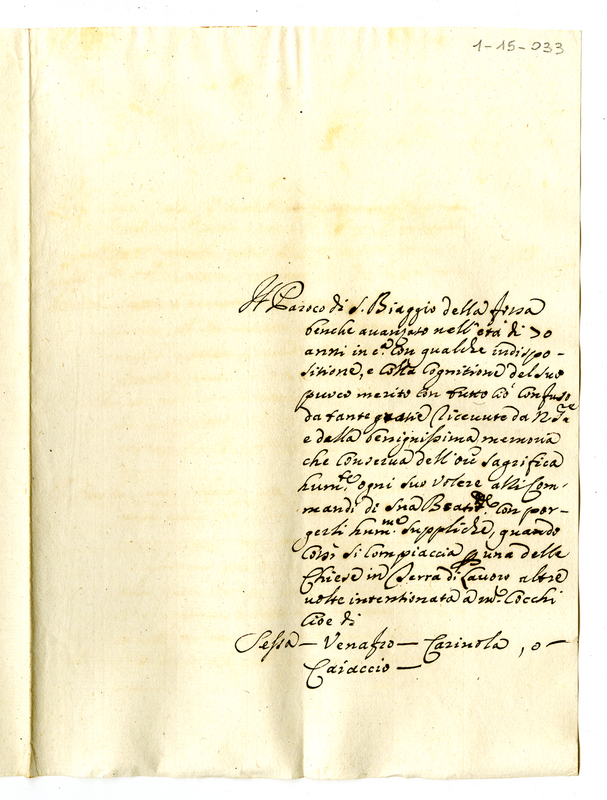 1-15-033
Il Paroco di S. Biaggio della fossa
benche avanzato nell'età di 70
anni in c.ª con qualche indispo-
sitione, e colla cognitione del suo
puoco merito con tutto ciò confuso
da tante gratie ricevute da N. S.re
e dalla benignissima memoria
che conserva dell' sagrifica
hum.te ogni suo volere alli Com-
mandi di Sua Beatd.e con por-
gerli hum.me suppliche, quando
così si compiaccia p una delle
Chiese in Terra di Lavoro altre
volte intentionata a Cocchi
cioe di
Sessa — Venafro — Carinola , o —
Caiaccio —